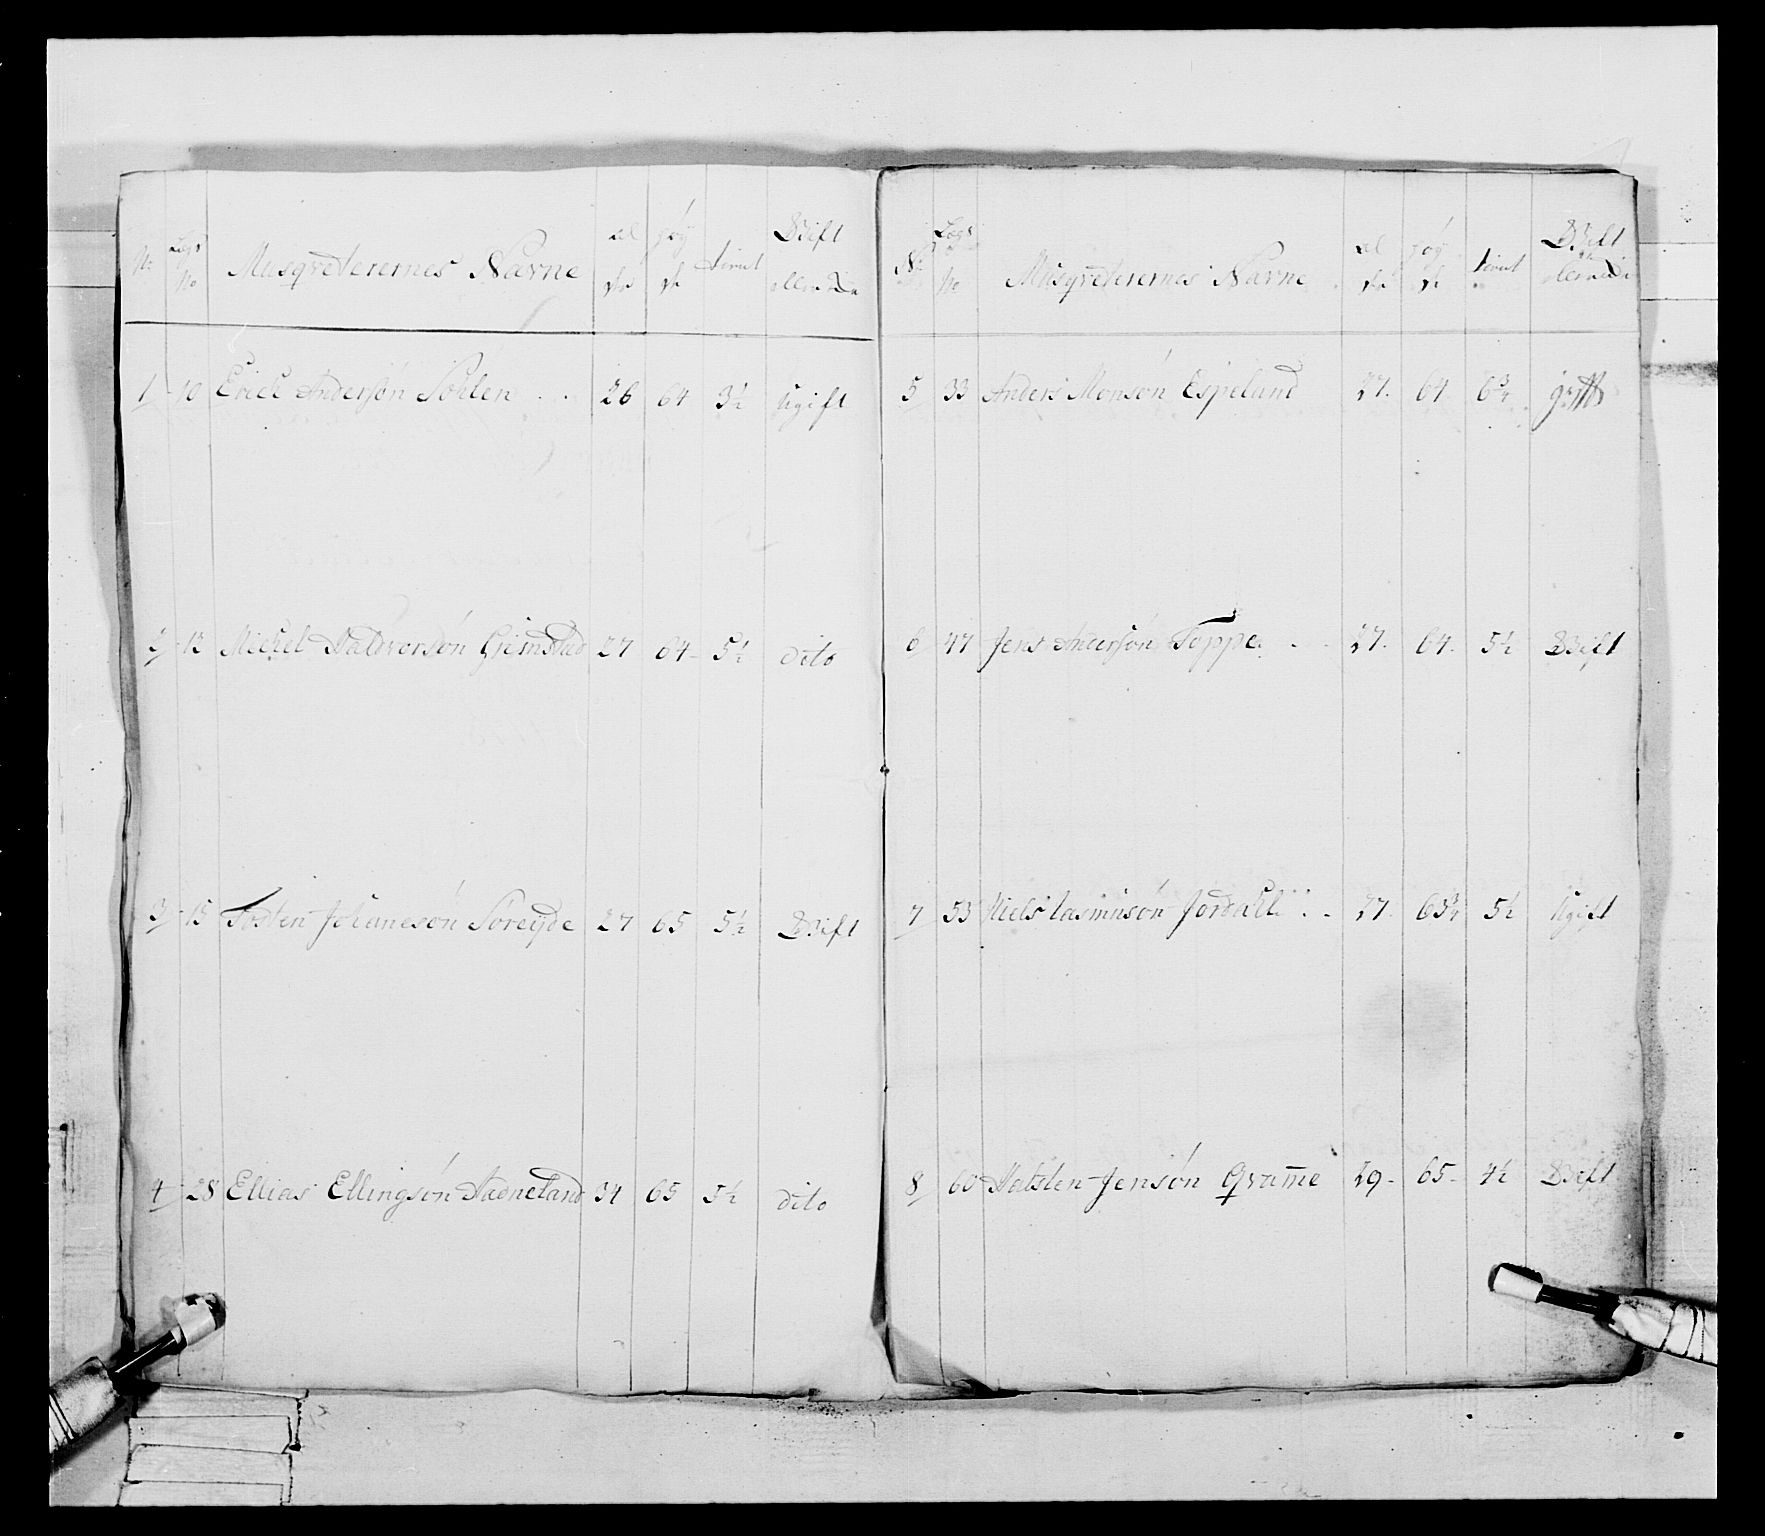 No Legs No Musqveterernes Navne Al der Høy de tienst Gift eller ei
1 10 Erick Andersøn Søhlen . . 26 64 3½ Ugift
2 12 Mickel Haldvorsøn Grimstad 27 64 5½ dito
3 15 Tosten Johanesøn Søreyde 27 65 5½ Gift
4 28 Ellias Ellingsøn Hadneland 34 65 5½ dito
No Legs No Musqveterernes Navne Al der Høy de tienst Gift eller ei
5 33 Anders Monsøn Espeland 27. 64 6¾ gift
6 47 Jens Andersøn Toppe . . 27. 64. 5½ Gift
7 53 Niels Rasmusøn Jordahl . . 27. 65¾ 5½ Ugift
8 60 Halsten Jensøn Qvam̅e 29- 65- 4½ Gift